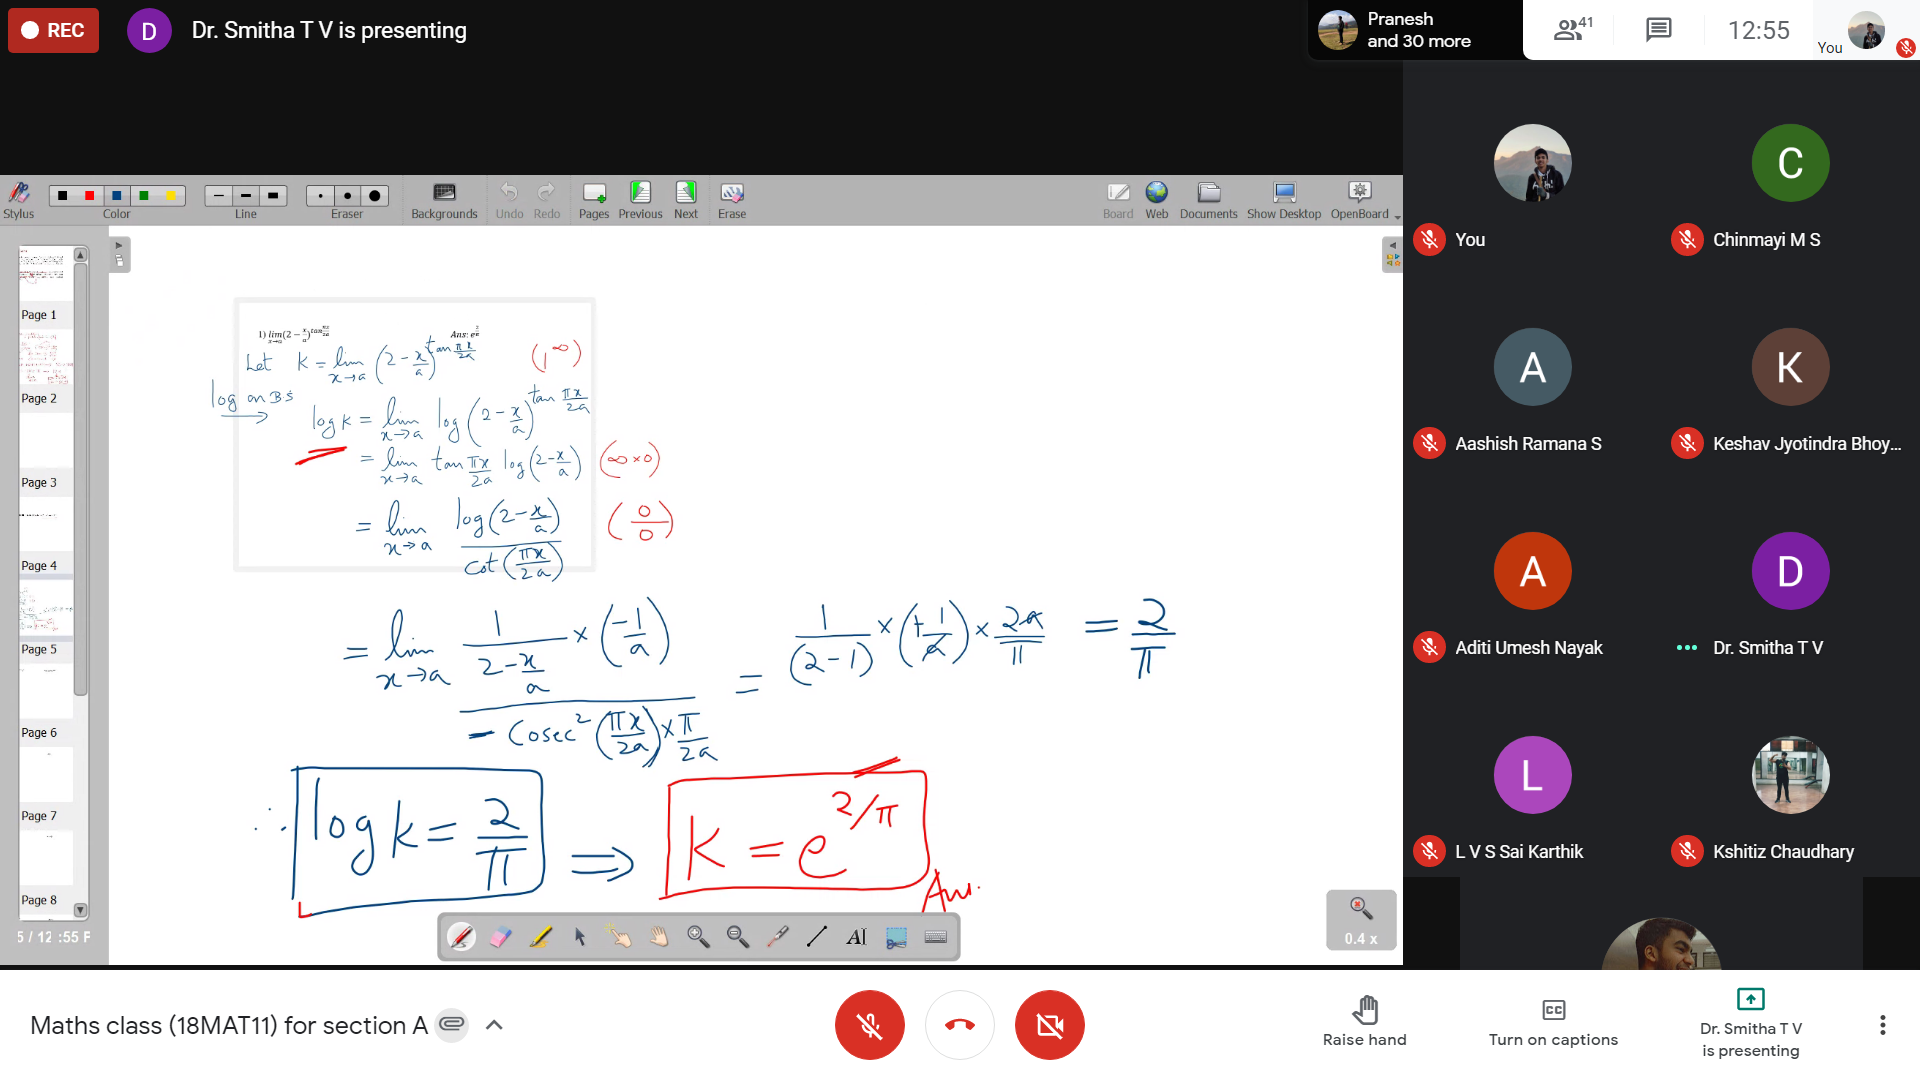 REC
D
Dr. Smitha T V is presenting
Pranesh
and 30 more
41
12:55
You
Stylus
Color
Line
Eraser
Backgrounds
Undo
Redo
Pages
Previous
Next
Erase
Board
Web
Documents
Show Desktop
OpenBoard
Page 1
Page 2
Page 3
Page 4
Page 5
Page 6
Page 7
Page 8
5 / 12 :55 P
1) lim x→a (2 − x/a)^tan πx/2a Ans: e^2/π
Let K = lim x→a (2 − x/a)^tan πx/2a (1^∞)
log on B.S →
log K = lim x→a log (2 − x/a)^tan πx/2a
= lim x→a tan πx/2a log (2 − x/a) (∞ × 0)
= lim x→a log (2 − x/a) / cot (πx/2a) (0/0)
= lim x→a 1/(2 − x/a) × (−1/a) / − Cosec² (πx/2a) × π/2a = 1/(2 − 1) × (+1/a) × 2a/π = 2/π
∴ log K = 2/π ⟹ K = e^2/π
Ans.
0.4 x
You
C
Chinmayi M S
A
Aashish Ramana S
K
Keshav Jyotindra Bhoy...
A
Aditi Umesh Nayak
D
Dr. Smitha T V
L
L V S Sai Karthik
Kshitiz Chaudhary
Maths class (18MAT11) for section A
Raise hand
CC
Turn on captions
Dr. Smitha T V
is presenting